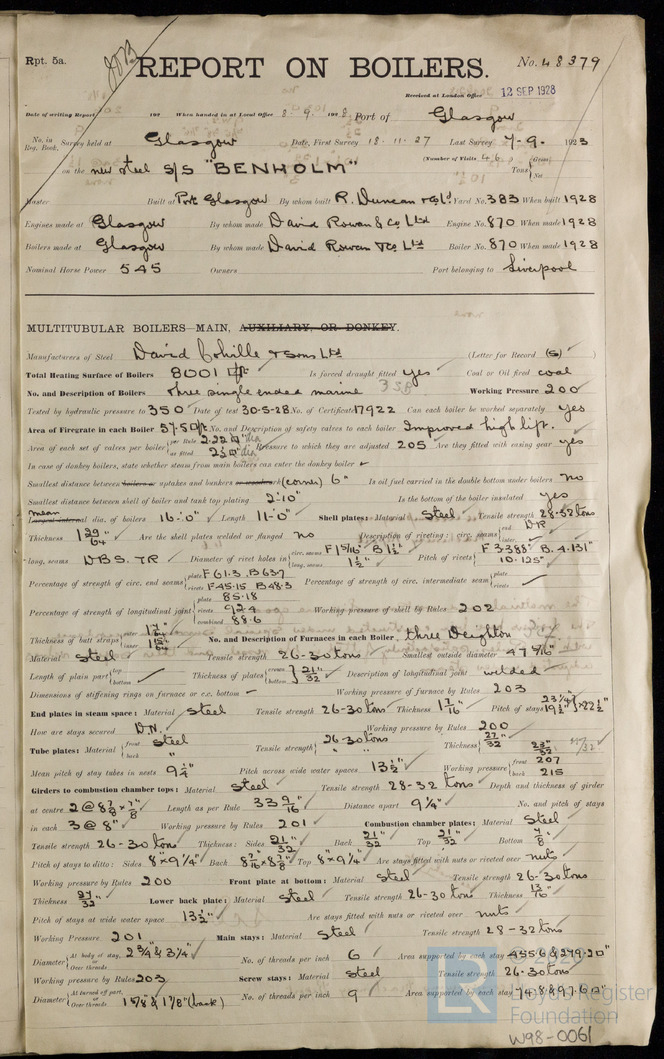 Rpt. 5a.
REPORT ON BOILERS.
No. 48379
Received at London Office 12 SEP 1928
Date of writing Report 192 When handed in at Local Office 8.9.1928 Port of Glasgow
No. in Reg. Book. Survey held at Glasgow Date, First Survey 18.11.27 Last Survey 7-9-1928
(Number of Visits 46)
on the new steel S/S "BENHOLM" Tons Gross Net
Master Built at Port Glasgow By whom built R. Duncan & Co Ld Yard No. 383 When built 1928
Engines made at Glasgow By whom made David Rowan & Co Ltd Engine No. 870 When made 1928
Boilers made at Glasgow By whom made David Rowan & Co Ltd Boiler No. 870 When made 1928
Nominal Horse Power 545 Owners Port belonging to Liverpool
MULTITUBULAR BOILERS—MAIN, AUXILIARY, OR DONKEY.
Manufacturers of Steel David Colville & Sons Ltd (Letter for Record (S) )
Total Heating Surface of Boilers 8001 Is forced draught fitted yes Coal or Oil fired coal
No. and Description of Boilers three single ended marine 3SB Working Pressure 200
Tested by hydraulic pressure to 350 Date of test 30-5-28 No. of Certificate 17922 Can each boiler be worked separately yes
Area of Firegrate in each Boiler 57.5 No. and Description of safety valves to each boiler Improved high lift.
Area of each set of valves per boiler per Rule 2.22 dia as fitted 2½ dia Pressure to which they are adjusted 205 Are they fitted with easing gear yes
In case of donkey boilers, state whether steam from main boilers can enter the donkey boiler
Smallest distance between boilers or uptakes and bunkers or woodwork (corner) 6" Is oil fuel carried in the double bottom under boilers no
Smallest distance between shell of boiler and tank top plating 2'10" Is the bottom of the boiler insulated yes
mean
Largest internal dia. of boilers 16'-0" Length 11'-0" Shell plates: Material Steel Tensile strength 28-32 tons
Thickness 1 29/64" Are the shell plates welded or flanged no Description of riveting: circ. seams end DR
long. seams DBS. TR Diameter of rivet holes in circ. seams F 1 5/16" B 1½" long. seams 1½" Pitch of rivets F 3.388" B. 4.131" 10.125"
Percentage of strength of circ. end seams plate F 61.3 B 63.7 rivets F 45.15 B 48.3 Percentage of strength of circ. intermediate seam plate rivets
Percentage of strength of longitudinal joint plate 85.18 rivets 92.4 combined 88.6 Working pressure of shell by Rules 202
Thickness of butt straps outer inner No. and Description of Furnaces in each Boiler three Deighton
Material Steel Tensile strength 26-30 tons Smallest outside diameter 47 9/16"
Length of plain part top bottom Thickness of plates crown bottom 21"/32 Description of longitudinal joint welded
Dimensions of stiffening rings on furnace or c.c. bottom Working pressure of furnace by Rules 203
End plates in steam space: Material Steel Tensile strength 26-30 tons Thickness 1 3/16" Pitch of stays 23¼" 19½" × 22½"
How are stays secured D.N. Working pressure by Rules 200
Tube plates: Material front Steel back " Tensile strength 26-30 tons " " Thickness 27"/32 23"/32
Mean pitch of stay tubes in nests 9¼" Pitch across wide water spaces 13½" Working pressure front 207 back 215
Girders to combustion chamber tops: Material Steel Tensile strength 28-32 tons Depth and thickness of girder
at centre 2 @ 8⅞ × ⅞" Length as per Rule 33 9/16" Distance apart 9¼" No. and pitch of stays
in each 3 @ 8" Working pressure by Rules 201 Combustion chamber plates: Material Steel
Tensile strength 26-30 tons Thickness: Sides 21/32 Back 21"/32 Top 21"/32 Bottom 7/8"
Pitch of stays to ditto: Sides 8" × 9¼" Back Top 8" × 9¼" Are stays fitted with nuts or riveted over nuts
Working pressure by Rules 200 Front plate at bottom: Material Steel Tensile strength 26-30 tons
Thickness 27"/32 Lower back plate: Material Steel Tensile strength 26-30 tons Thickness 13"/16
Pitch of stays at wide water space 13½" Are stays fitted with nuts or riveted over nuts
Working Pressure 201 Main stays: Material Steel Tensile strength 28-32 tons
Diameter At body of stay, or Over threads 2¾" & 3¼" No. of threads per inch 6 Area supported by each stay 455.6 & 279.2
Working pressure by Rules 203 Screw stays: Material Steel Tensile strength 26-30 tons
Diameter At turned off part, or Over threads 1⅝" & 1⅞" (back) No. of threads per inch 9 Area supported by each stay 74.8 & 97.6
© 2021 Lloyd's Register Foundation
W98-0061